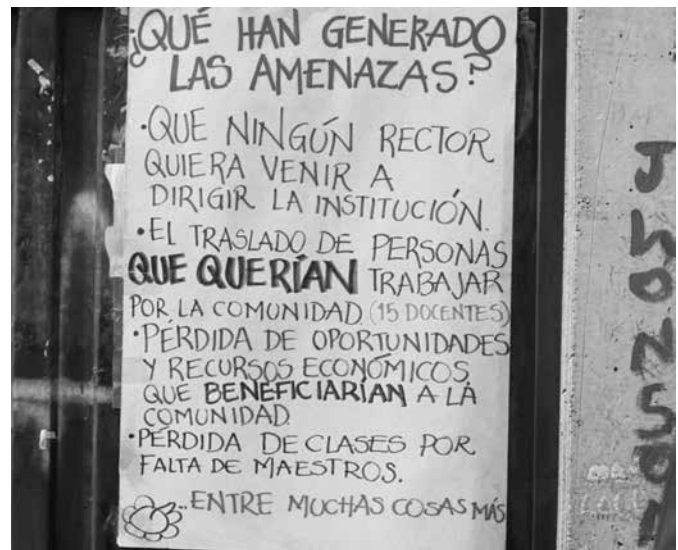 ¿QUÉ HAN GENERADO
LAS AMENAZAS?
•QUE NINGÚN RECTOR
QUIERA VENIR A
DIRIGIR LA INSTITUCIÓN.
•EL TRASLADO DE PERSONAS
QUE QUERÍAN TRABAJAR
POR LA COMUNIDAD. (15 DOCENTES)
•PÉRDIDA DE OPORTUNIDADES
Y RECURSOS ECONÓMICOS
QUE BENEFICIARÍAN A LA
COMUNIDAD.
•PÉRDIDA DE CLASES POR
FALTA DE MAESTROS.
...ENTRE MUCHAS COSAS MÁS